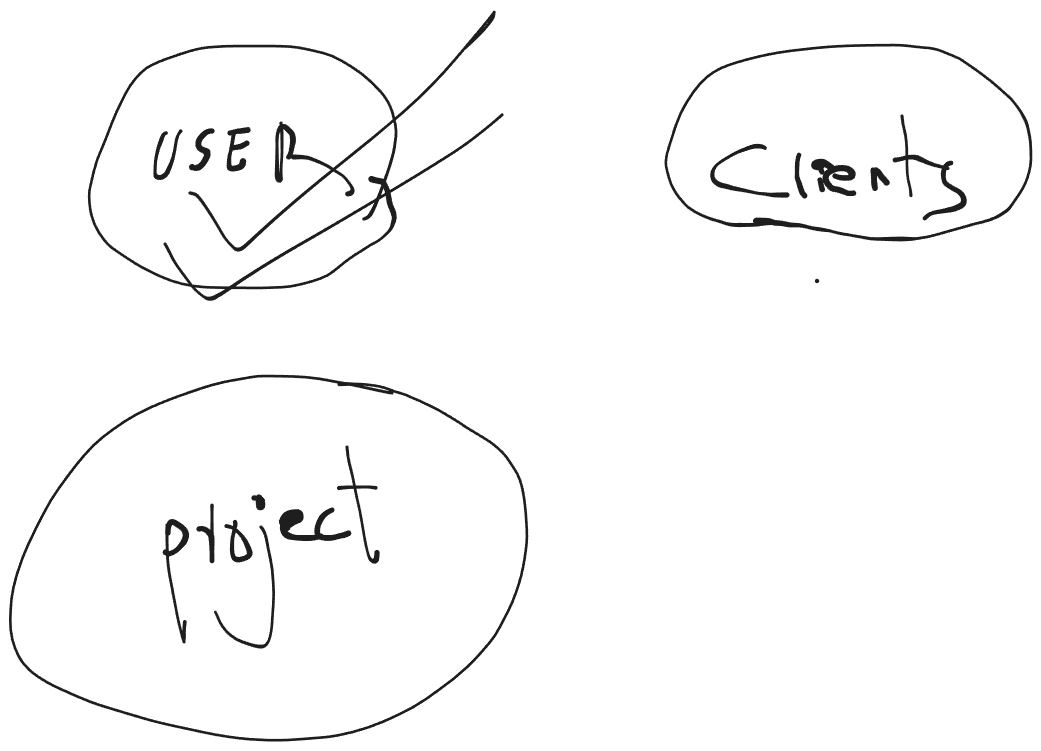 USER
Clients
project